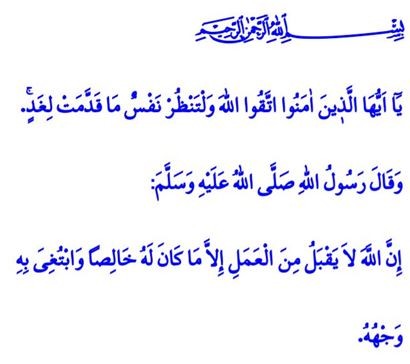 بِسْمِ اللهِ الرَّحْمٰنِ الرَّحِيمِ
يَٓا اَيُّهَا الَّذ۪ينَ اٰمَنُوا اتَّقُوا اللهَ وَلْتَنْظُرْ نَفْسٌ مَا قَدَّمَتْ لِغَدٍۚ.
وَقَالَ رَسُولُ اللهِ صَلَّى اللهُ عَلَيْهِ وَسَلَّمَ:
إِنَّ اللَّهَ لاَ يَقْبَلُ مِنَ الْعَمَلِ إِلاَّ مَا كَانَ لَهُ خَالِصًا وَابْتُغِىَ بِهِ
وَجْهُهُ.